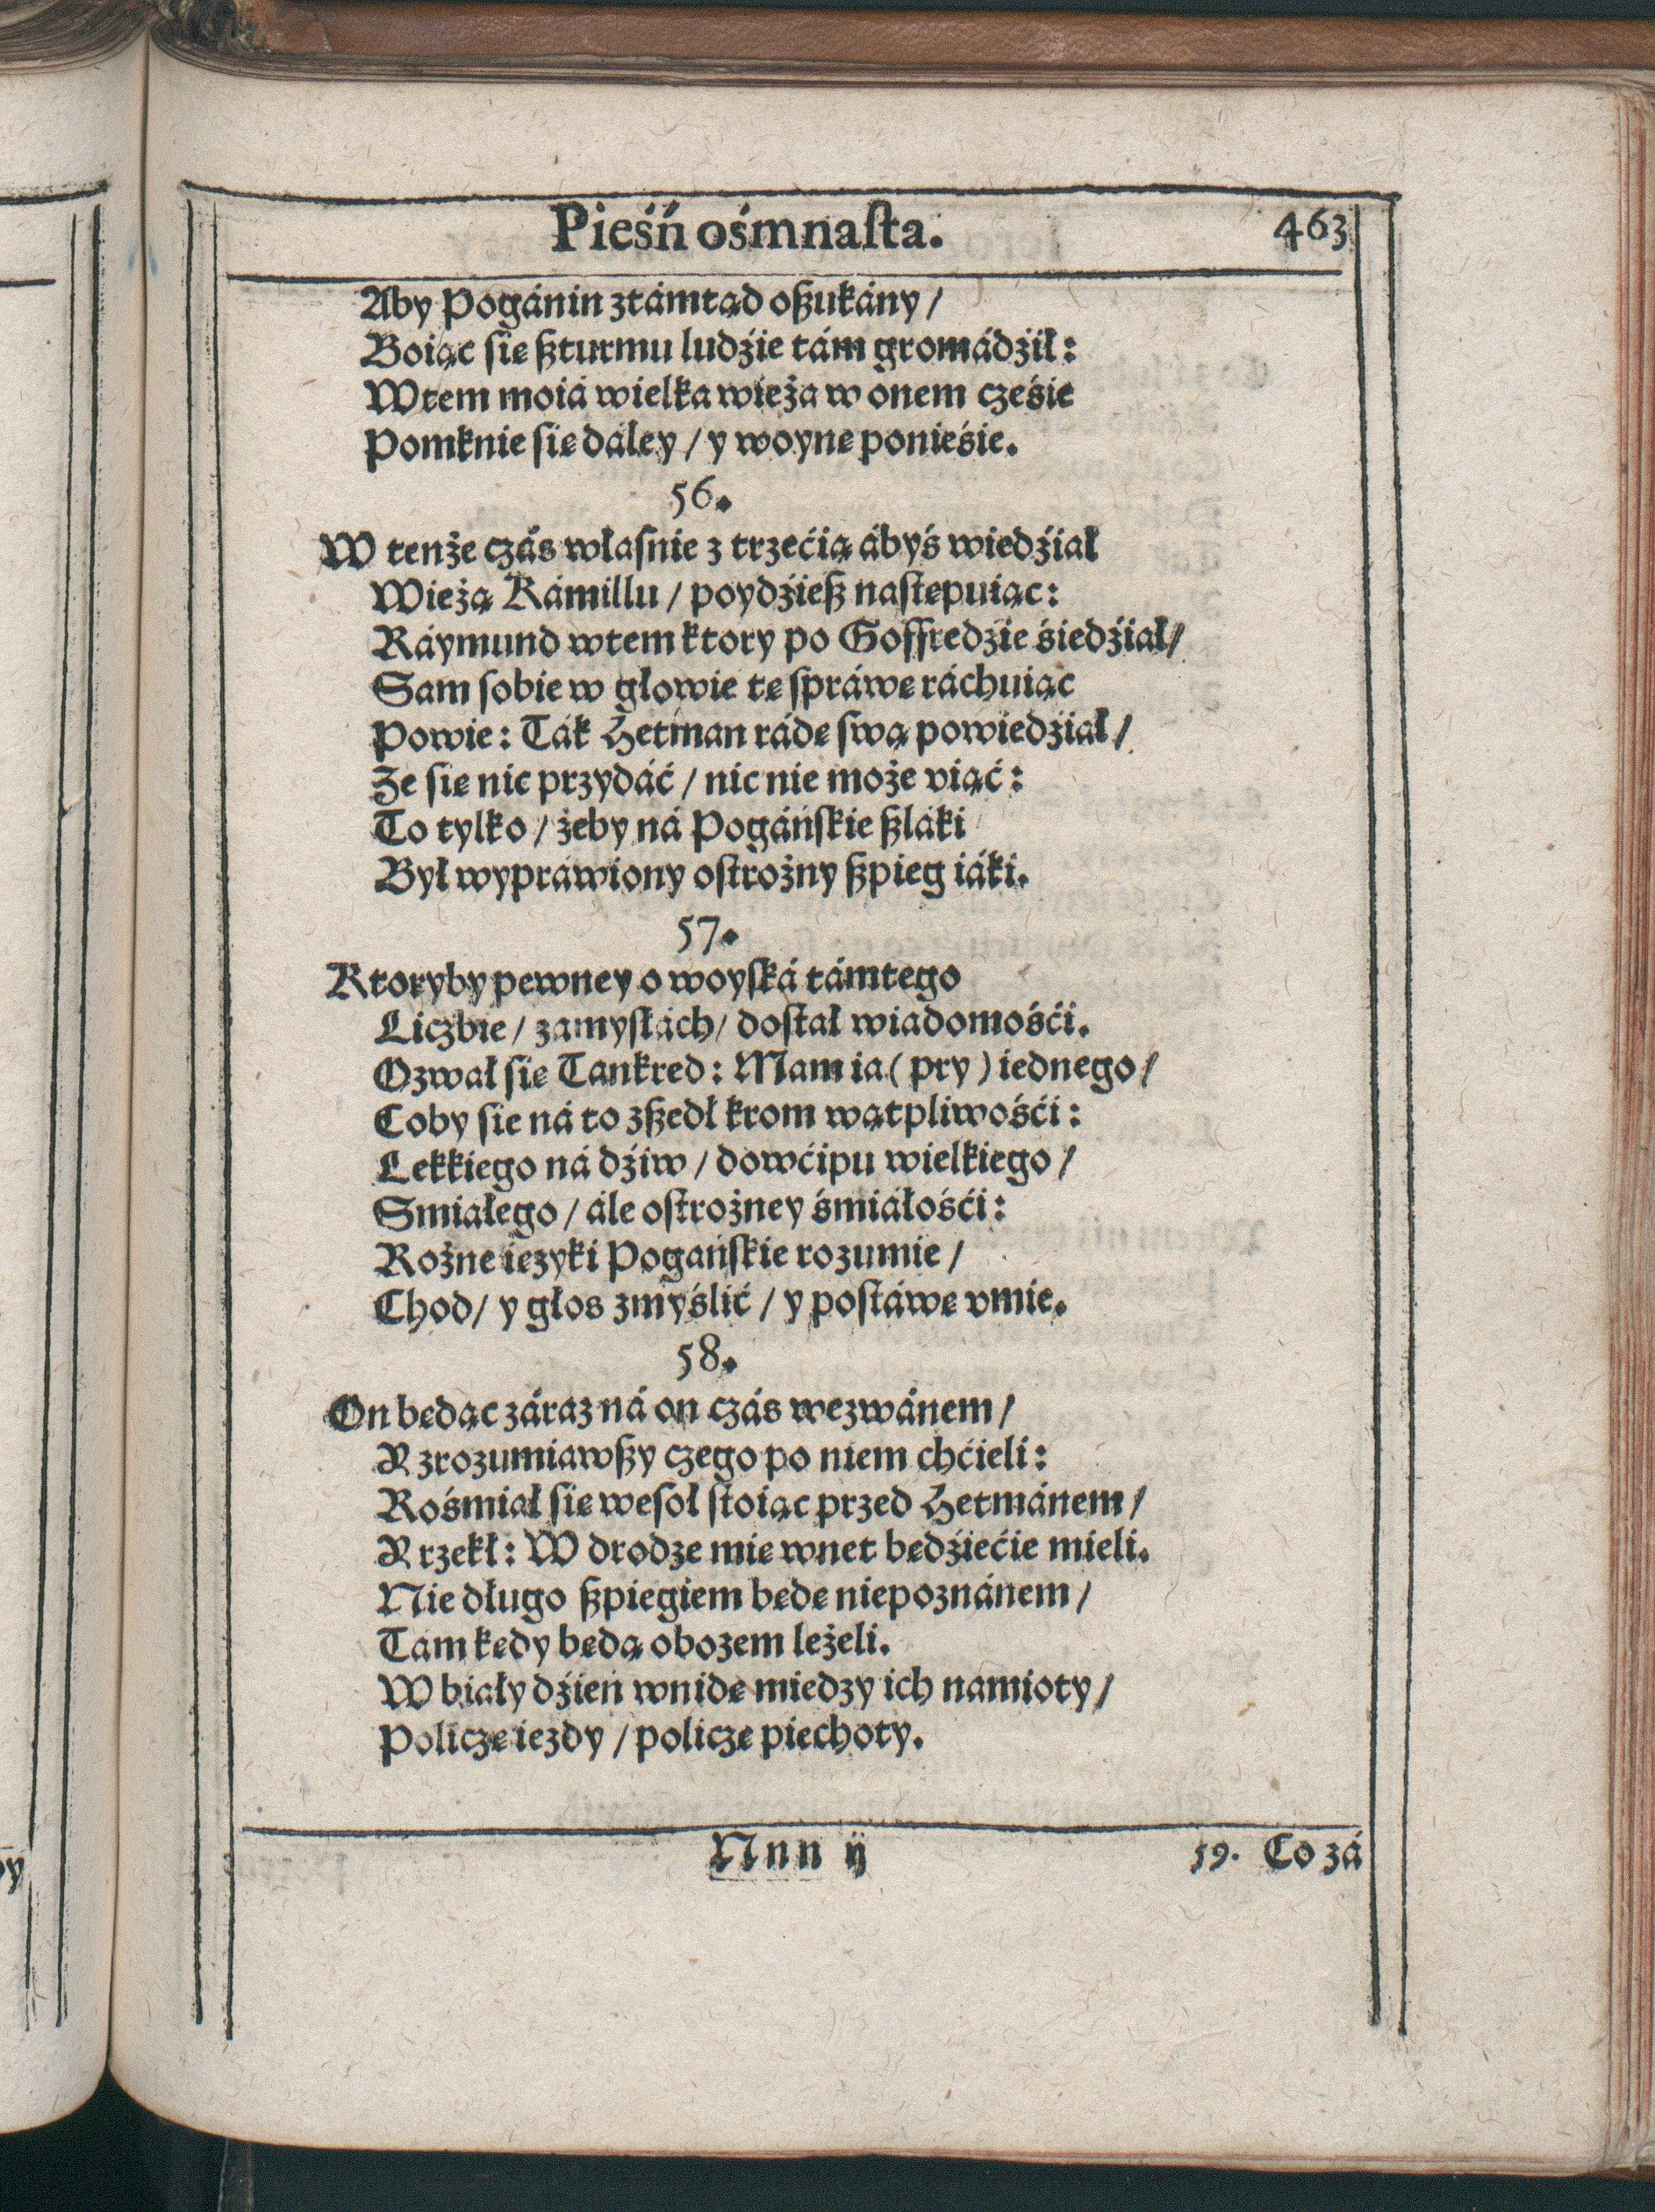 Pieśń ośmnaſta. 463
Aby Pogánin ztámtąd oßukány /
Boiąc ſię ßturmu ludźie tám gromádźił:
Wtem moiá wielka wieża w onem cześie
Pomknie ſię dáley / y woynę ponieśie.
56.
W tenże czás właſnie z trzećią ábyś wiedźiał
Wieżą Kámillu / poydźieß naſtępuiąc:
Ráymund wtem ktory po Goffredzie śiedźiał /
Sam ſobie w głowie tę ſpráwę ráchuiąc
Powie: Ták Hetman rádę ſwą powiedźiał /
Że ſię nic przydáć / nic nie może viąć:
To tylko / żeby ná Pogáńſkie ßláki
Był wypráwiony oſtrożny ßpieg iáki.
57.
Ktoryby pewney o woyſká támtego
Liczbie / zamyſłách / doſtał wiadomośći.
Ozwał ſię Tankred: Mam ia ( pry ) iednego /
Coby ſię ná to zßedł krom wątpliwośći:
Lekkiego ná dźiw / dowćipu wielkiego /
Smiałego / ále oſtrożney śmiáłośći:
Rożne ięzyki Pogańſkie rozumie /
Chod / y głos zmyślić / y poſtáwę vmie.
58.
On będąc záraz ná on czás wezwánem /
Y zrozumiawßy czego po niem chćieli:
Rośmiał ſię weſoł ſtoiąc przed Hetmánem /
Y rzekł: W drodze mię wnet będźiećie mieli.
Nie długo ßpiegiem będę niepoznánem /
Tam kędy będą obozem leżeli.
W biały dźień wnidę miedzy ich namioty /
Policzę iezdy / policzę piechoty.
Nnn ij 59. Co zá